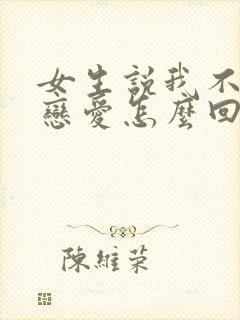 女生説我不
戀愛怎麼回
陳維榮